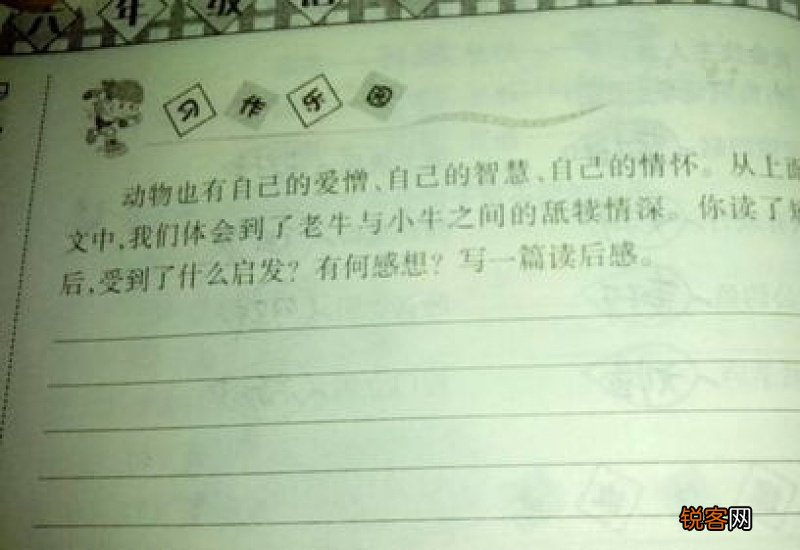 六年级
习作乐园
动物也有自己的爱憎、自己的智慧、自己的情怀。从上面
文中,我们体会到了老牛与小牛之间的舐犊情深。你读了短
后,受到了什么启发?有何感想?写一篇读后感。
锐客网